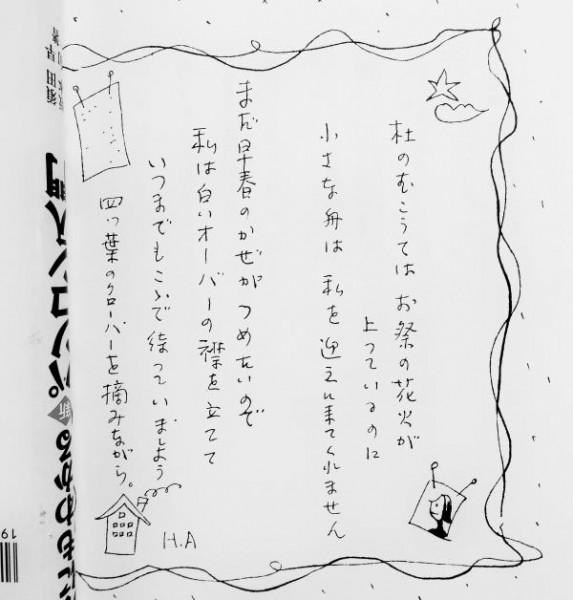 杜のむこうでは お祭の花火が
上っているのに
小さな舟は 私を迎えに来てくれません
まだ早春のかぜが つめたいので
私は白いオーバーの襟を立てて
いつまでもここで待っていましょう
四ッ葉のクローバーを摘みながら。
H.A
19